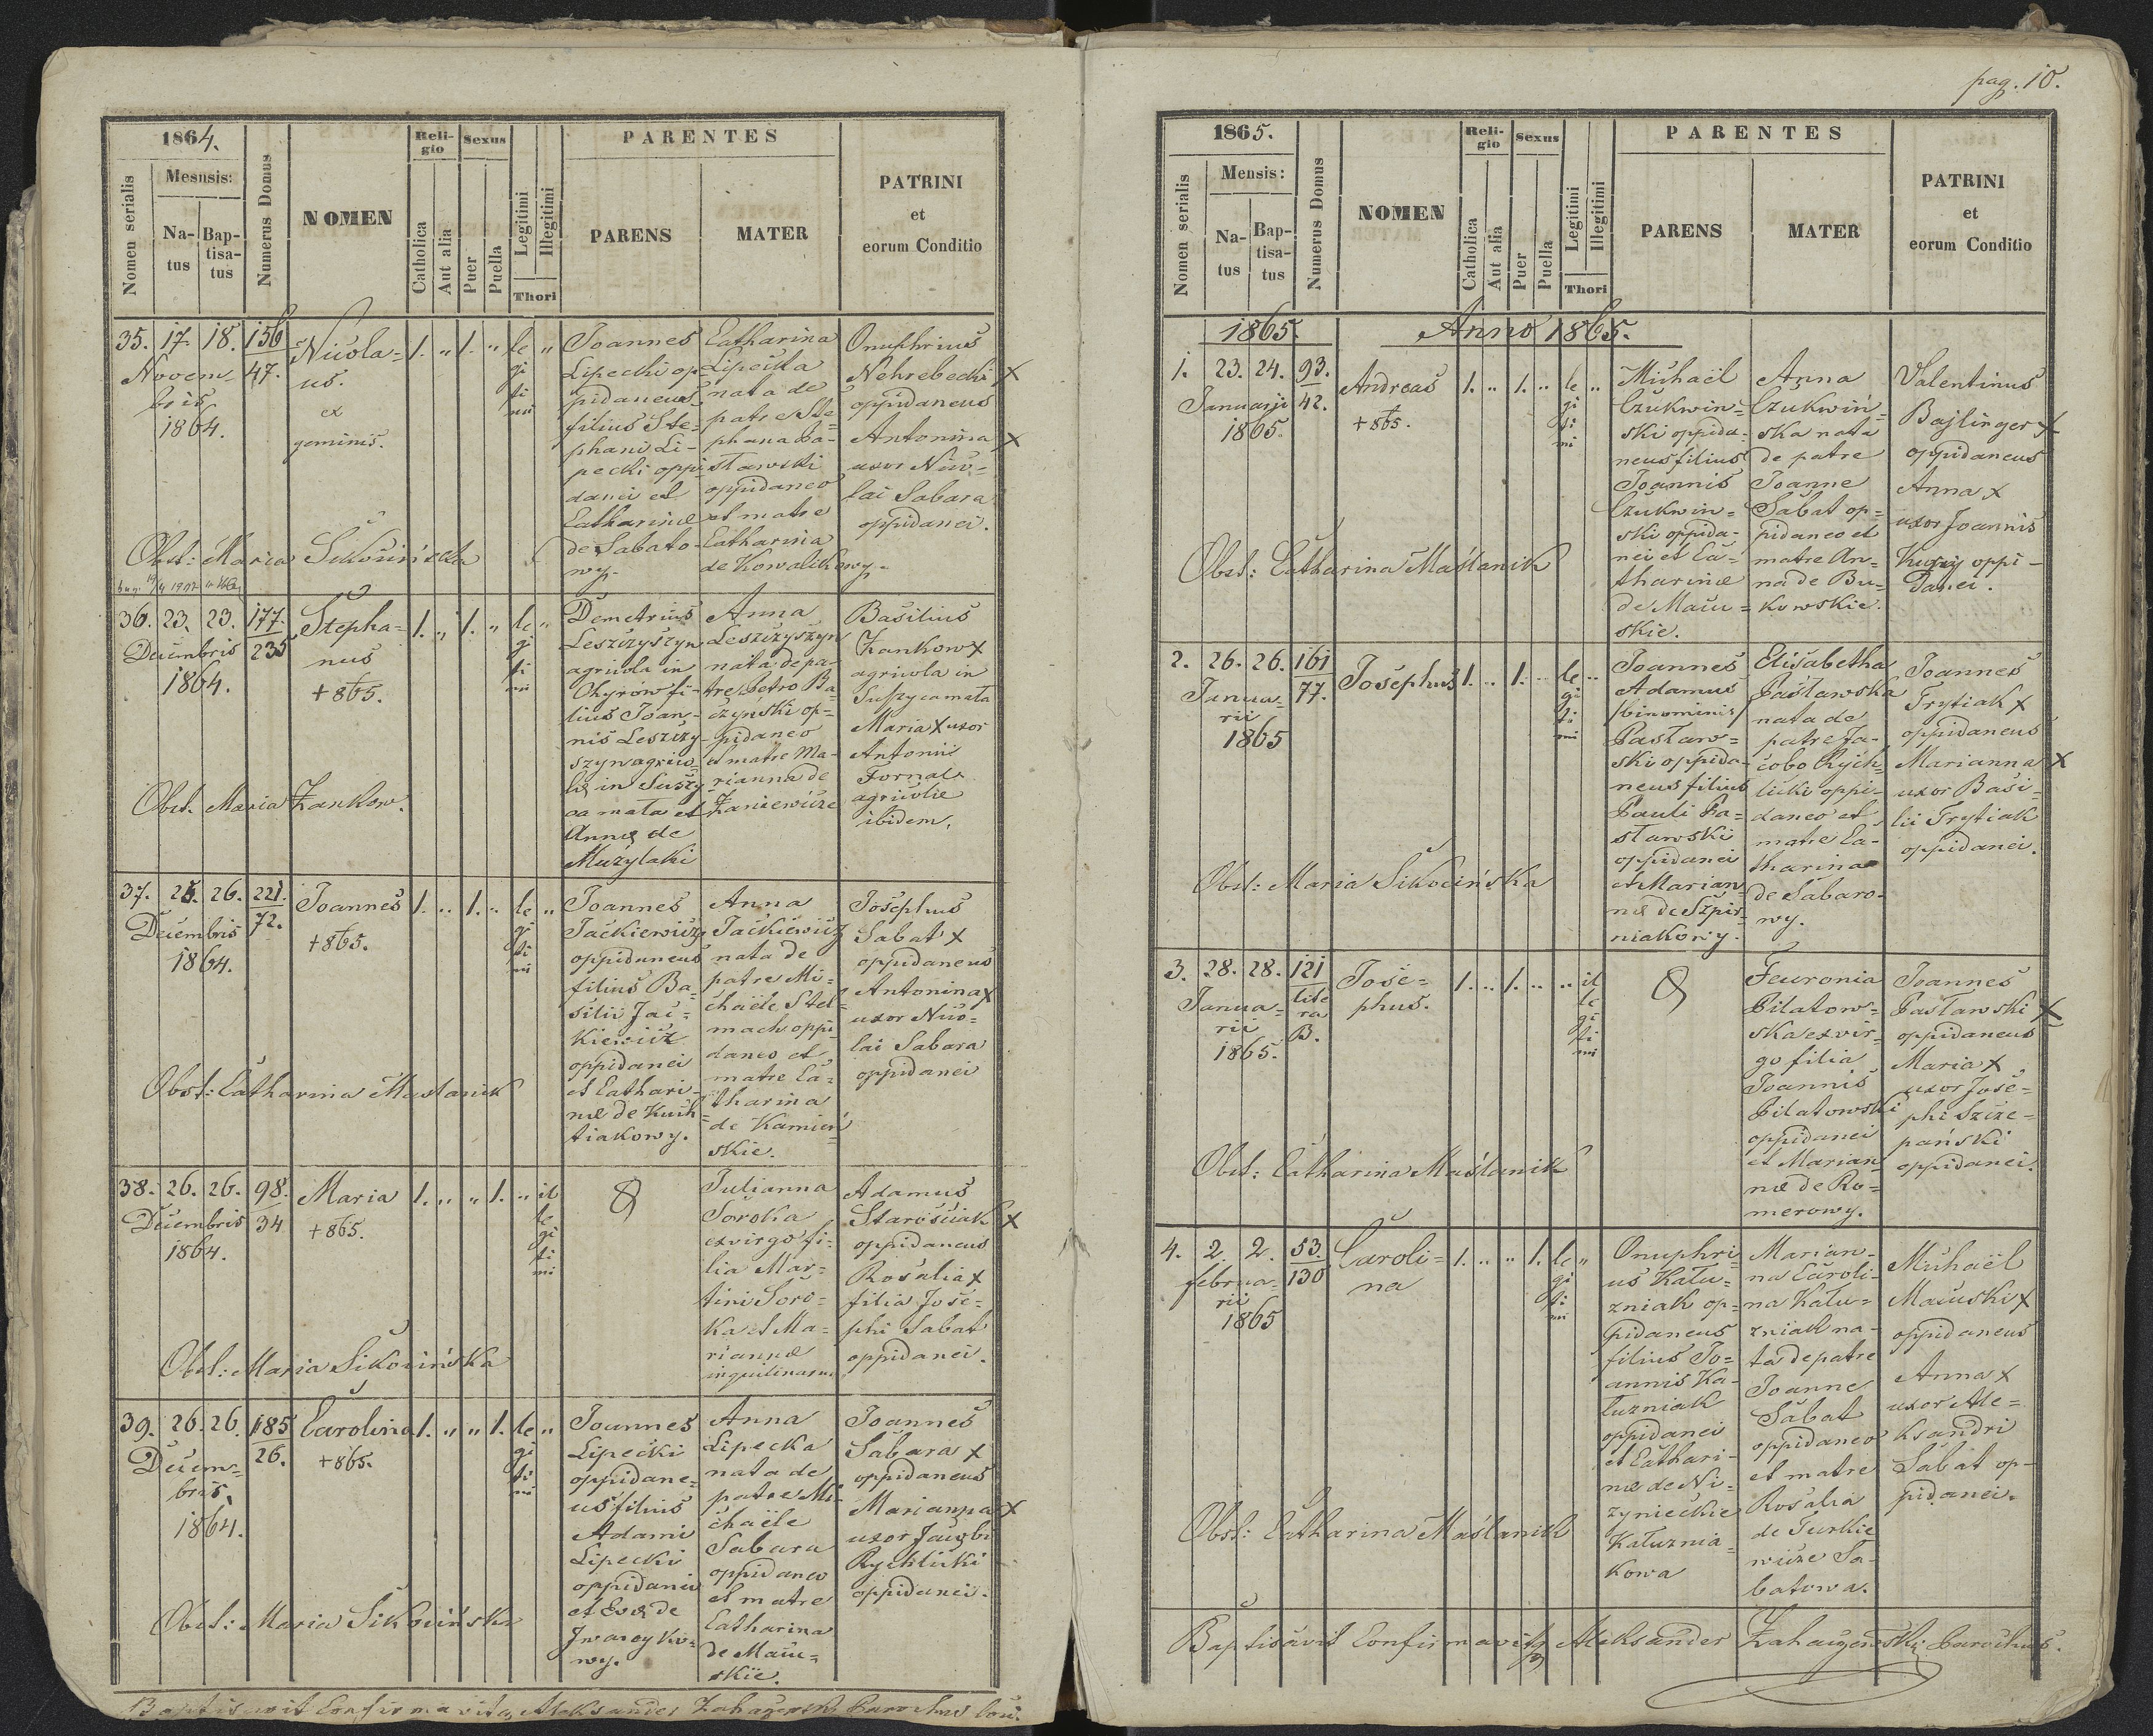 1864.
Nomen serialis
Mesnsis:
Na-
tus
Bap-
tisa-
tus
Numerus Domus
NOMEN
Reli-
gio
Catholica
Aut alia
Sexus
Puer
Puella
Legitimi
Illegitimi
Thori
PARENTES
PARENS
MATER
PATRINI
et
eorum Conditio
35. 17. 18. 156
47.
Novem-
bris
1864.
Nicola=
us.
ex
geminis.
1. " 1. " le "
gi
ti
mi
Joannes
Lipecki op=
pidaneus
filius Ste=
phani Li-
pecki oppi
danei et
Catharinæ
de Sabato-
wy.
Catharina
Lipecka
nata de
patre Ste=
phano Pa-
stawski
oppidaneo
et matre
Catharina
de Kowalikowy.
Onuphrius
Nehrebecki X
oppidaneus
Antonina X
uxor Nico=
lai Sabara
oppidanei.
Obst: Maria Sikocińska
36. 23. 23. 177.
235
Decembris
1864.
Stepha=
nus
+865.
1. " 1. " le "
gi
ti
mi
Demetrius
Leszczyszyn
agricola in
Chyrów fi-
lius Joan-
nis Leszczy-
szyn agrico=
læ in Suszy
ca mała et
Annæ de
Muzylaki
Anna
Leszczyszyn
nata de pa-
tre Petro Ba=
czynski op=
pidaneo
et matre Ma-
rianna de
Zaniewicze
Basilius
Zankow X
agricola in
Suszyca mała
Maria X uxor
Antonii
Fornal
agricolæ
ibidem.
Obst. Maria Zankow.
37. 25. 26. 221.
72.
Decembris
1864.
Joannes
+865.
1. " 1. " le "
gi
ti
mi
Joannes
Jackiewicz
oppidaneus
filius Ba=
silii Jac=
kiewicz
oppidanei
et Cathari-
næ de Kuch
tiakowy.
Anna
Jackiewicz
nata de
patre Mi=
chaële Stel=
mach oppi
daneo et
matre Ca=
tharina
de Kamień=
skie.
Josephus
Sabat X
oppidaneus
Antonina X
uxor Nico=
lai Sabara
oppidanei
Obst: Catharina Maslanik
38. 26. 26. 98.
34
Decembris
1864.
Maria
+865.
1. " " 1. " il
le
gi
ti
mi
Julianna
Soroka
exvirgo fi-
lia Mar=
tini Soro=
ka et Ma=
riannæ
inquilinarum
Adamus
Starościak X
oppidaneus
Rosalia X
filia Jose=
phi Sabat
oppidanei.
Obst: Maria Sikocińska
39. 26. 26. 185
26.
Decem=
bris,
1864.
Carolina
+865.
1. " " 1. le "
gi
ti
mi
Joannes
Lipecki
oppidane=
us filius
Adami
Lipecki
oppidanei
et Evæ de
Iwaseykو-
wy.
Anna
Lipecka
nata de
patre Mi-
chaële
Sabara
oppidaneo
et matre
Catharina
de Macu=
skie.
Joannes
Sabara X
oppidaneus
Marianna X
uxor Jacobi
Rychlicki
oppidanei.
Obst: Maria Sikocińska
Baptisavit Confirmavitq Aleksander Parochus
pag. 10.
1865.
Nomen serialis
Mensis:
Na-
tus
Bap-
tisa-
tus
Numerus Domus
NOMEN
Reli-
gio
Catholica
Aut alia
Sexus
Puer
Puella
Legitimi
Illegitimi
Thori
PARENTES
PARENS
MATER
PATRINI
et
eorum Conditio
1865. Anno 1865.
1. 23. 24. 93.
42.
Januarji
1865.
Andreas
+865.
1. " 1. " le "
gi
ti
mi
Michaël
Czukwin=
ski oppida-
neus filius
Joannis
Czukwin=
ski oppida-
nei et Ca-
tharinæ
de Macu=
skie.
Anna
Czukwiń=
ska nata
de patre
Joanne
Sabat op=
pidaneo et
matre An-
na de Bu-
kowskie.
Valentinus
Bajlinger X
oppidaneus
Anna X
uxor Joannis
oppi-
danei.
Obst: Catharina Maślanik
2. 26. 26. 161
77.
Janua-
rii
1865
Josephus
1. " 1. " le "
gi
ti
mi
Joannes
Adamus
/binominis/
Pastaw=
ski oppida-
neus filius
Pauli Pa=
stawski
oppidanei
et Marian
næ de Szpir=
niakowy.
Elisabetha
Pastawska
nata de
patre Ja-
cobo Rych=
licki oppi-
daneo et
matre Ca-
tharina
de Sabaro-
wy.
Joannes
Trytiak X
oppidaneus
Marianna X
uxor Basi-
lii Trytiak
oppidanei.
Obst: Maria Sikocińska
3. 28. 28. 121
lite
ra
B.
Janua-
rii
1865.
Jose=
phus.
1. " 1. " " il
le
gi
ti
mi
Feuronia
Pilatow=
ska exvir-
go filia
Joannis
Pilatowski
oppidanei
et Marian
næ de Ro=
merowy.
Joannes
Pastawski X
oppidaneus
Maria X
uxor Jose=
phi Szcze=
pański
oppidanei.
Obst: Catharina Maślanik
4. 2. 2. 53.
130
februa-
rii
1865
Caroli=
na
1. " " 1. le "
gi
ti
mi
Onuphri
us Kału=
zniak op=
pidaneus
filius Jo=
annis Ka-
łuzniak
oppidanei
et Cathari-
næ de Ni-
zynieckie
Kałuznia=
kowa
Marian-
na Caroli-
na Kału=
zniak na-
ta de patre
Joanne
Sabat
oppidaneo
et matre
Rosalia
de Turkie
wicze Sa-
batowa.
Michaël
Macuski X
oppidaneus
Anna X
uxor Ale=
ksandri
Sabat op-
pidanei.
Obst: Catharina Maślanik
Baptisavit Confirmavitq Aleksander Parochus.